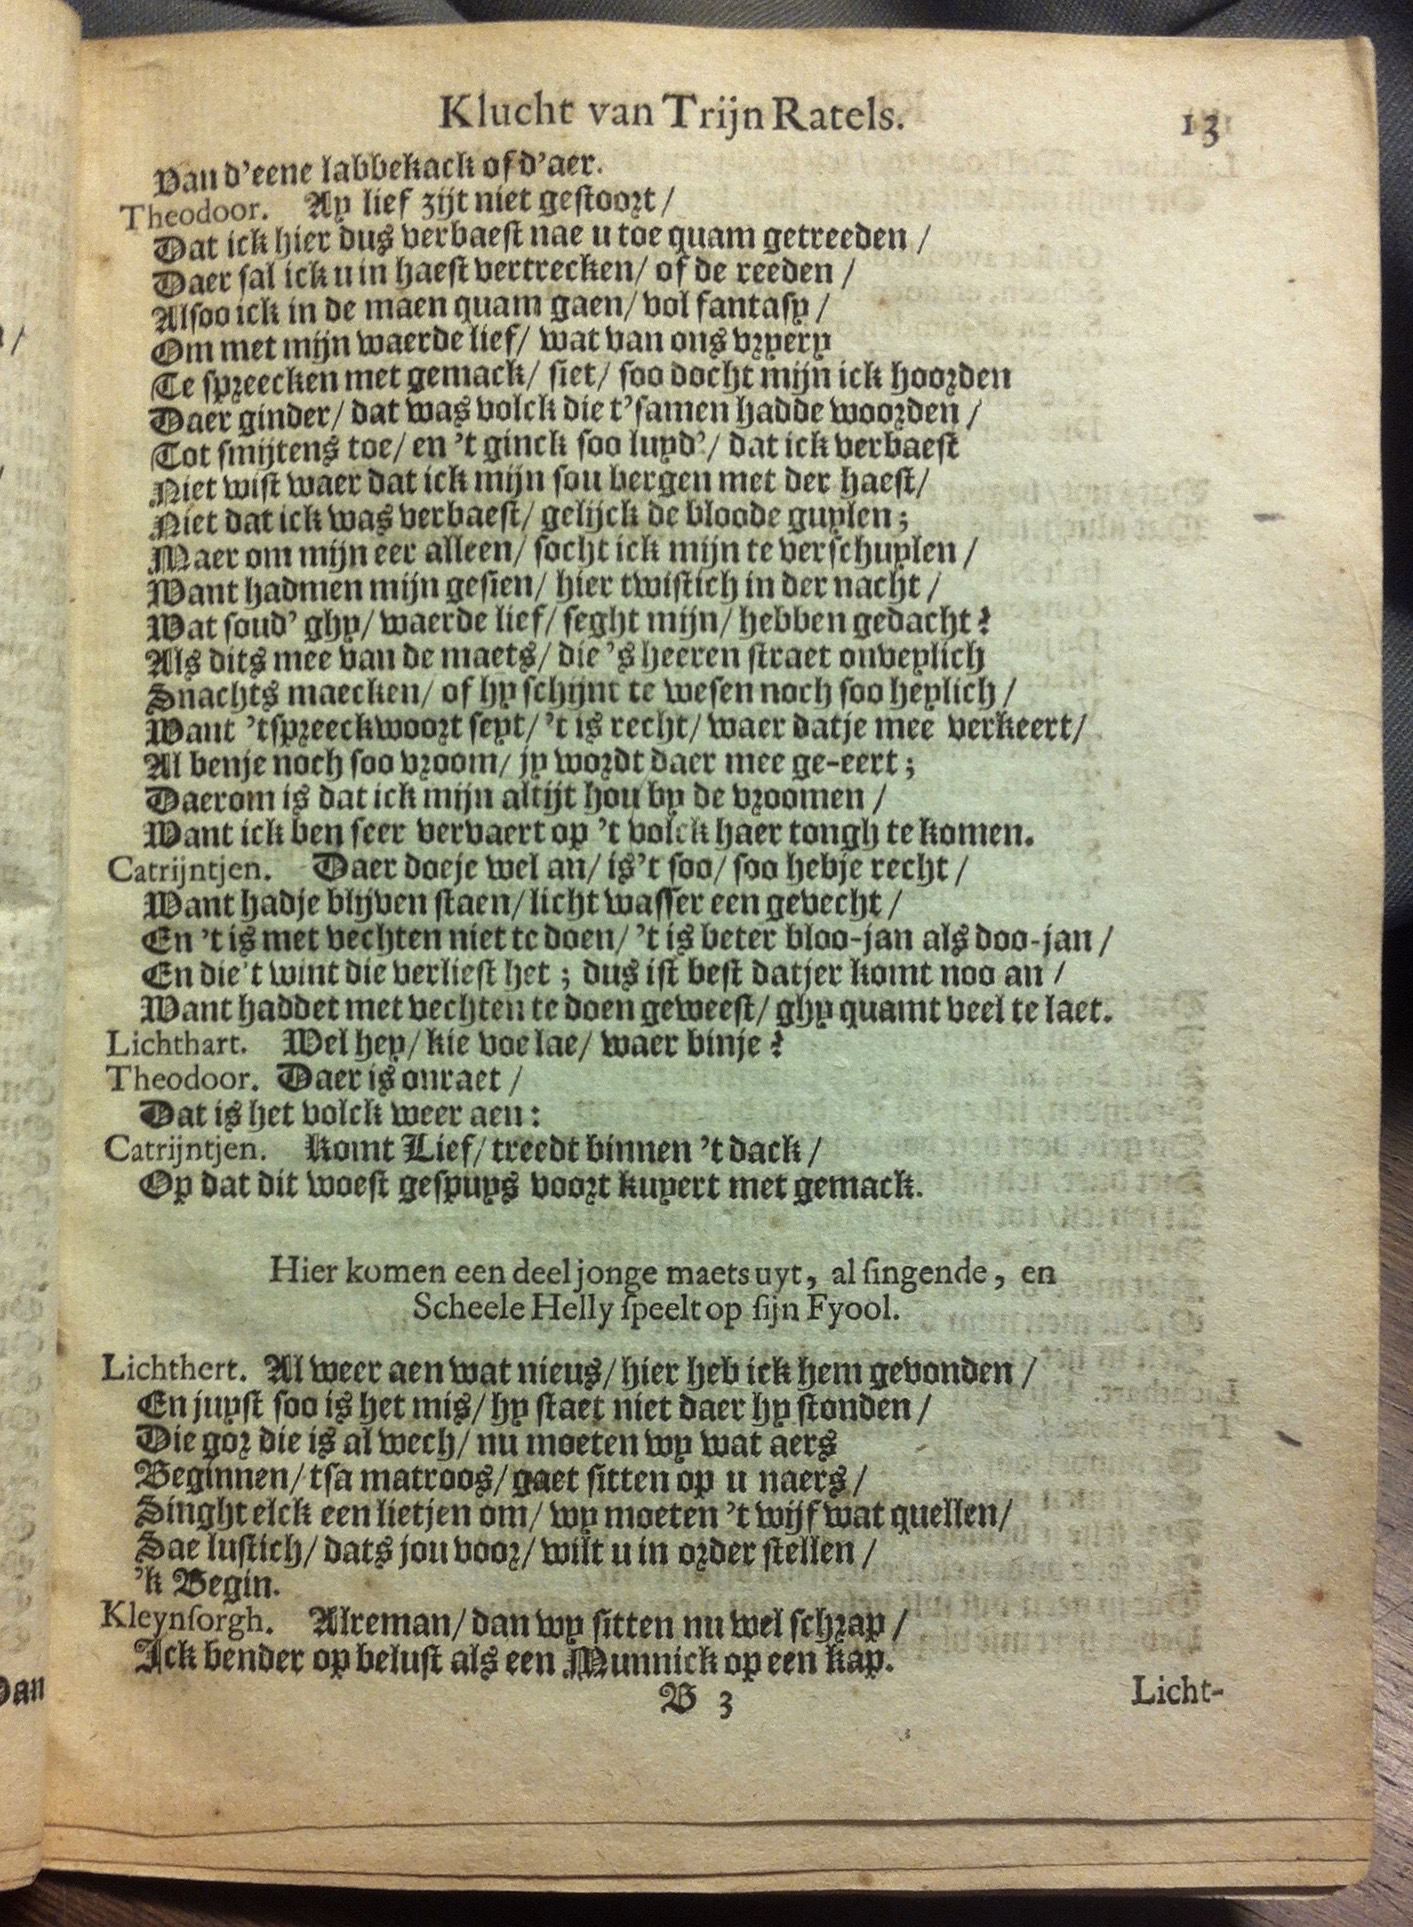 Klucht van Trijn Ratels. 13
Van d'eene labbekack of d'aer.
Theodoor. Ay lief zijt niet gestoort /
Dat ick hier dus verbaest nae u toe quam getreeden /
Daer sal ick u in haest vertrecken / of de reeden /
Alsoo ick in de maen quam gaen / vol fantasy /
Om met mijn waerde lief / wat van ons vryery
Te spreecken met gemack / siet / soo docht mijn ick hoorden
Daer ginder / dat was volck die t'samen hadde woorden /
Tot smijtens toe / en 't ginck soo luyd' / dat ick verbaest
Niet wist waer dat ick mijn sou bergen met der haest /
Niet dat ick was verbaest / gelijck de bloode guylen ;
Maer om mijn eer alleen / socht ick mijn te verschuylen /
Want hadmen mijn gesien / hier twistich in der nacht /
Wat soud' ghy / waerde lief / seght mijn / hebben gedacht ?
Als dits mee van de maets / die 's heeren straet onveylich
Snachts maecken / of hy schijnt te wesen noch soo heylich /
Want 'tspreeckwoort seyt / 't is recht / waer datje mee verkeert /
Al benje noch soo vroom / jy wordt daer mee ge-eert ;
Daerom is dat ick mijn altijt hou by de vroomen /
Want ick ben seer vervaert op 't volck haer tongh te komen.
Catrijntjen. Daer doeje wel an / is 't soo / soo hebje recht /
Want hadje blijven staen / licht wasser een gevecht /
En 't is met vechten niet te doen / 't is beter bloo-jan als doo-jan /
En die 't wint die verliest het ; dus ist best datjer komt noo an /
Want haddet met vechten te doen geweest / ghy quamt veel te laet.
Lichthart. Wel hey / kie voe lae / waer binje ?
Theodoor. Daer is onraet /
Dat is het volck weer aen :
Catrijntjen. Komt Lief / treedt binnen 't dack /
Op dat dit woest gespuys voort kuyert met gemack.
Hier komen een deel jonge maets uyt, al singende, en
Scheele Helly speelt op sijn Fyool.
Lichthert. Al weer aen wat nieus / hier heb ick hem gevonden /
En juyst soo is het mis / hy staet niet daer hy stonden /
Die gor die is al wech / nu moeten wy wat aers
Beginnen / tsa matroos / gaet sitten op u naers /
Singht elck een lietjen om / wy moeten 't wijf wat quellen /
Sae lustich / dats jou voor / wilt u in order stellen /
'k Begin.
Kleynsorgh. Alreman / dan wy sitten nu wel schrap /
Ick bender op belust als een Munnick op een kap.
B 3 Licht-
Dan